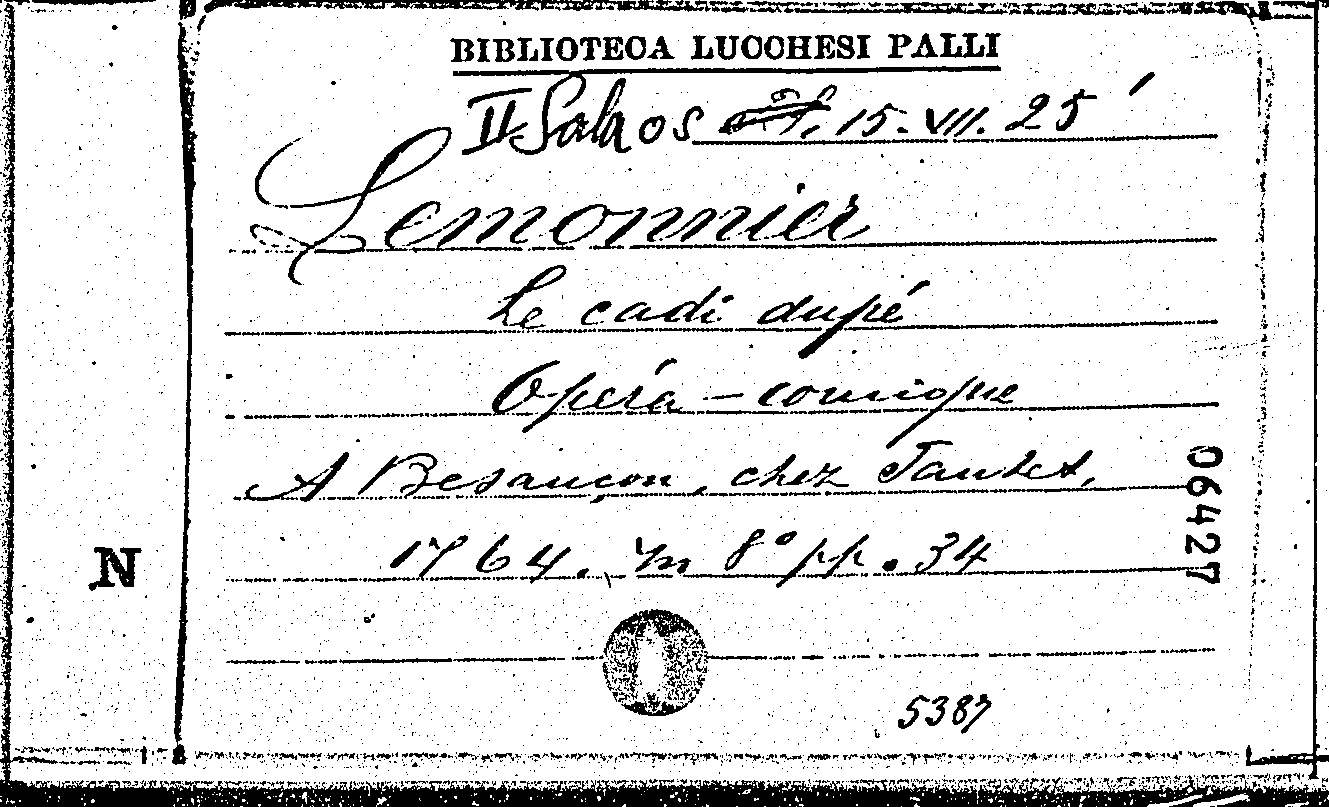 BIBLIOTECA LUCCHESI PALLI
II Sala 15. VII. 25
Lemonnier
Le cadi dupé
Opéra-comique
A Besançon, chez
1764. In 8° pp. 34
06427
N
5387